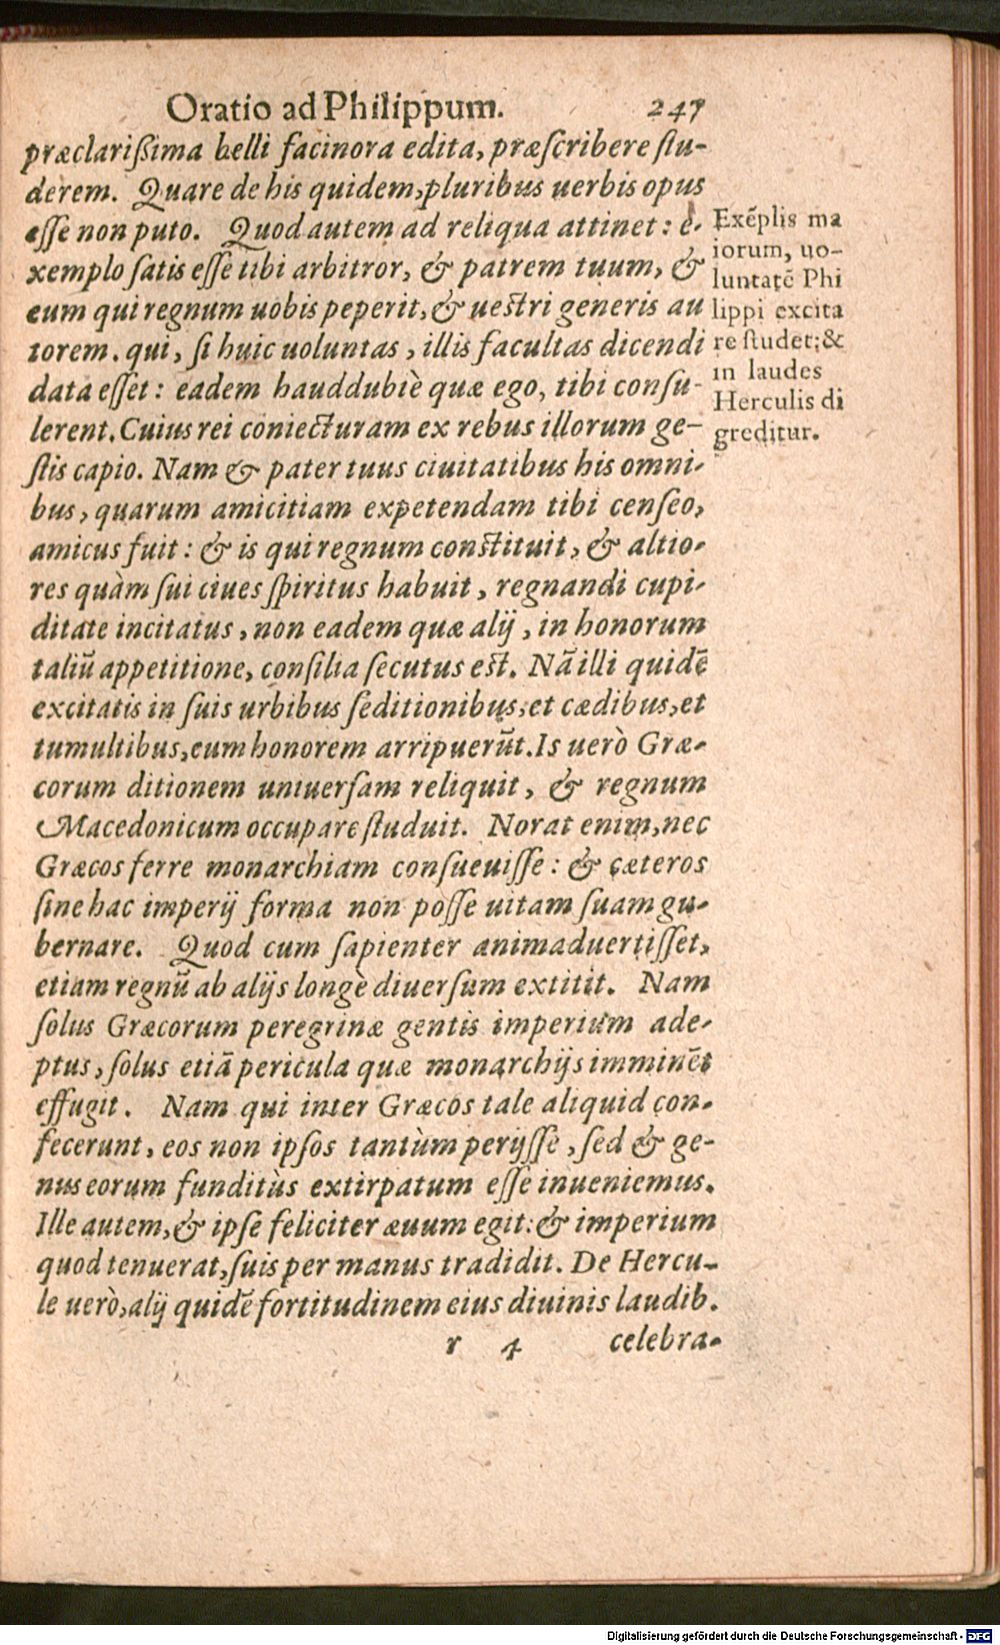 Oratio ad Philippum. 247
præclarißima belli facinora edita, præſcribere ſtu-
derem. Quare de his quidem, pluribus uerbis opus
eſſe non puto. Quod autem ad reliqua attinet: e-
xemplo ſatis eſſe tibi arbitror, & patrem tuum, &
eum qui regnum uobis peperit, & ueſtri generis au
torem. qui, ſi huic uoluntas, illis facultas dicendi
data eſſet: eadem hauddubiè quæ ego, tibi conſu-
lerent. Cuius rei coniecturam ex rebus illorum ge-
ſtis capio. Nam & pater tuus ciuitatibus his omni-
bus, quarum amicitiam expetendam tibi cenſeo,
amicus fuit: & is qui regnum conſtituit, & altio-
res quàm ſui ciues ſpiritus habuit, regnandi cupi-
ditate incitatus, non eadem quæ alij, in honorum
taliũ appetitione, conſilia ſecutus eſt. Nã illi quidẽ
excitatis in ſuis urbibus ſeditionibus, et cædibus, et
tumultibus, eum honorem arripuerũt. Is uerò Græ-
corum ditionem uniuerſam reliquit, & regnum
Macedonicum occupare ſtuduit. Norat enim, nec
Græcos ferre monarchiam conſueuiſſe: & cæteros
ſine hac imperij forma non poſſe uitam ſuam gu-
bernare. Quod cum ſapienter animaduertiſſet,
etiam regnũ ab alijs longè diuerſum extitit. Nam
ſolus Græcorum peregrinæ gentis imperium ade-
ptus, ſolus etiã pericula quæ monarchijs imminẽt
effugit. Nam qui inter Græcos tale aliquid con-
fecerunt, eos non ipſos tantùm perijſſe, ſed & ge-
nus eorum funditùs extirpatum eſſe inueniemus.
Ille autem, & ipſe feliciter æuum egit: & imperium
quod tenuerat, ſuis per manus tradidit. De Hercu-
le uerò, alij quidẽ fortitudinem eius diuinis laudib.
r 4 celebra-
Exẽplis ma
iorum, uo-
luntatẽ Phi
lippi excita
re ſtudet: &
in laudes
Herculis di
greditur.
Digitalisierung gefördert durch die Deutsche Forschungsgemeinschaft - DFG